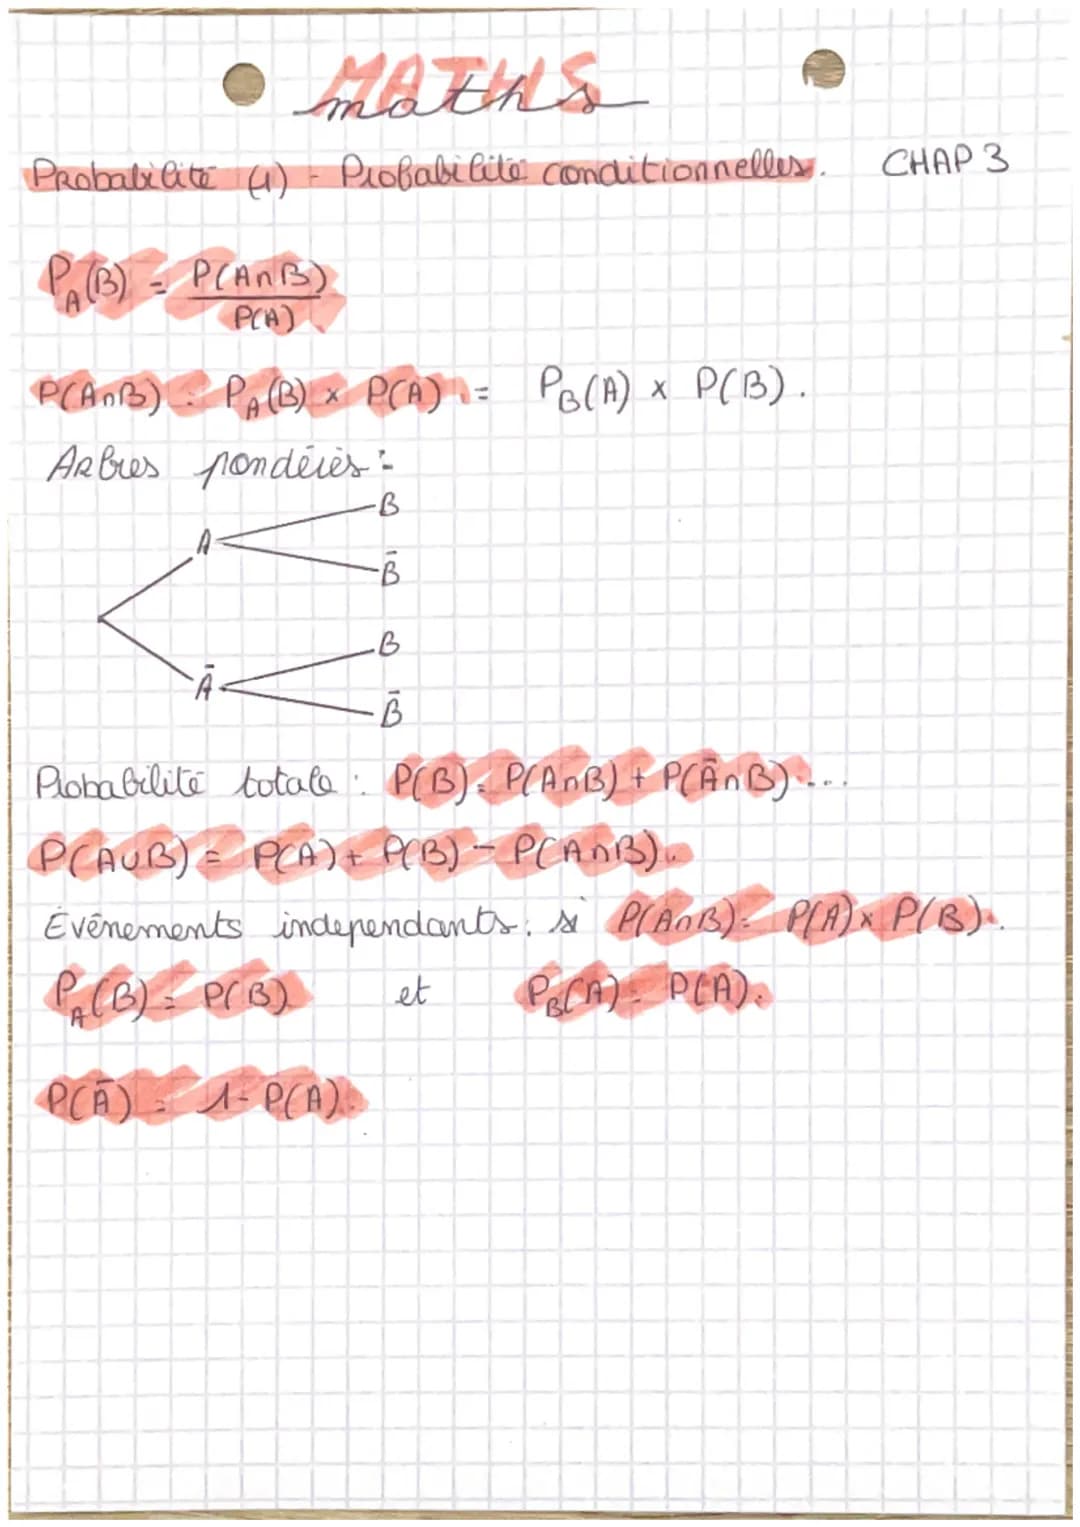 MATHS
maths
Probabilité (1) - Probabilité conditionnelles. CHAP 3
P_A(B) = P(A∩B) / P(A)
P(A∩B) = P_A(B) × P(A) = P_B(A) × P(B).
Arbres pondérés :
B
A
B̄
B
Ā
B̄
Probabilité totale : P(B) = P(A∩B) + P(Ā∩B)....
P(A∪B) = P(A) + P(B) - P(A∩B).
Évênements independants : si P(A∩B) = P(A) × P(B).
P_A(B) = P(B) et P_B(A) = P(A).
P(Ā) = 1 - P(A).